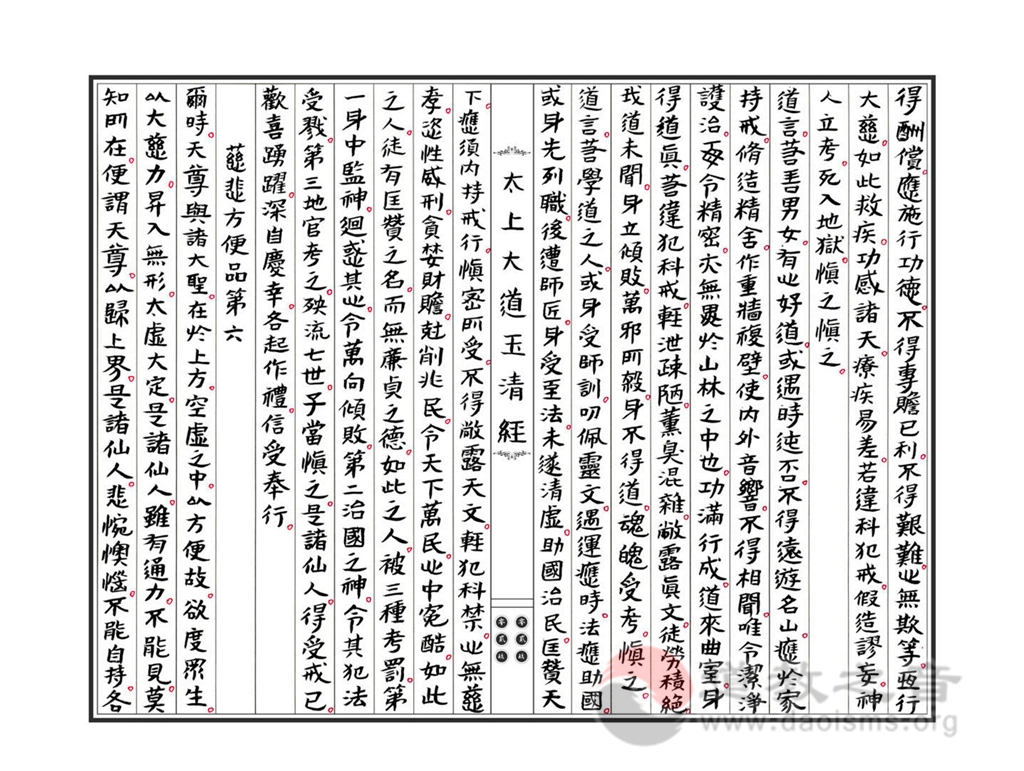 得酬償應施行功德不得專贍已利不得艱難心無欺等恆行
大慈如此救疾功感諸天療疾易差若違科犯戒假造謬妄神
人立考死入地獄慎之慎之
道言善男女有心好道或遇時迍否不得遠遊名山應於家
持戒脩造精舍作重牆複壁使內外音響不得相聞唯令潔淨
護治令精密亦無異於山林之中也功滿行成道來曲室身
得道真若違犯科戒輕泄疎陋薰臭混雜敞露真文徒勞積絕
我道未聞身立傾敗萬邪所殺身不得道魂魄受考慎之
道言若學道之人或身受師訓叨佩靈文遇運應時法應助國
或身先列職後遭師匠身受至法未遂清虛助國治民匡贊天
太上大道玉清經
零貳玖
零貳玖
下應須內持戒行慎密所受不得敞露天文輕犯科禁心無慈
孝恣性威刑貪婪財贍尅削兆民令天下萬民心中冤酷如此
之人徒有匡贊之名而無廉貞之德如此之人被三種考罰第
一身中監神迴惑其心令萬向傾敗第二治國之神令其犯法
受戮第三地官考之殃流七世子當慎之是諸仙人得受戒已
歡喜踴躍深自慶幸各起作禮信受奉行
慈悲方便品第六
爾時天尊與諸大聖在於上方空虛之中以方便故欲度眾生
以大慈力昇入無形太虛大定是諸仙人雖有通力不能見莫
知所在便謂天尊以歸上界是諸仙人悲惋懊惱不能自持各
道教之音
www.daoisms.org